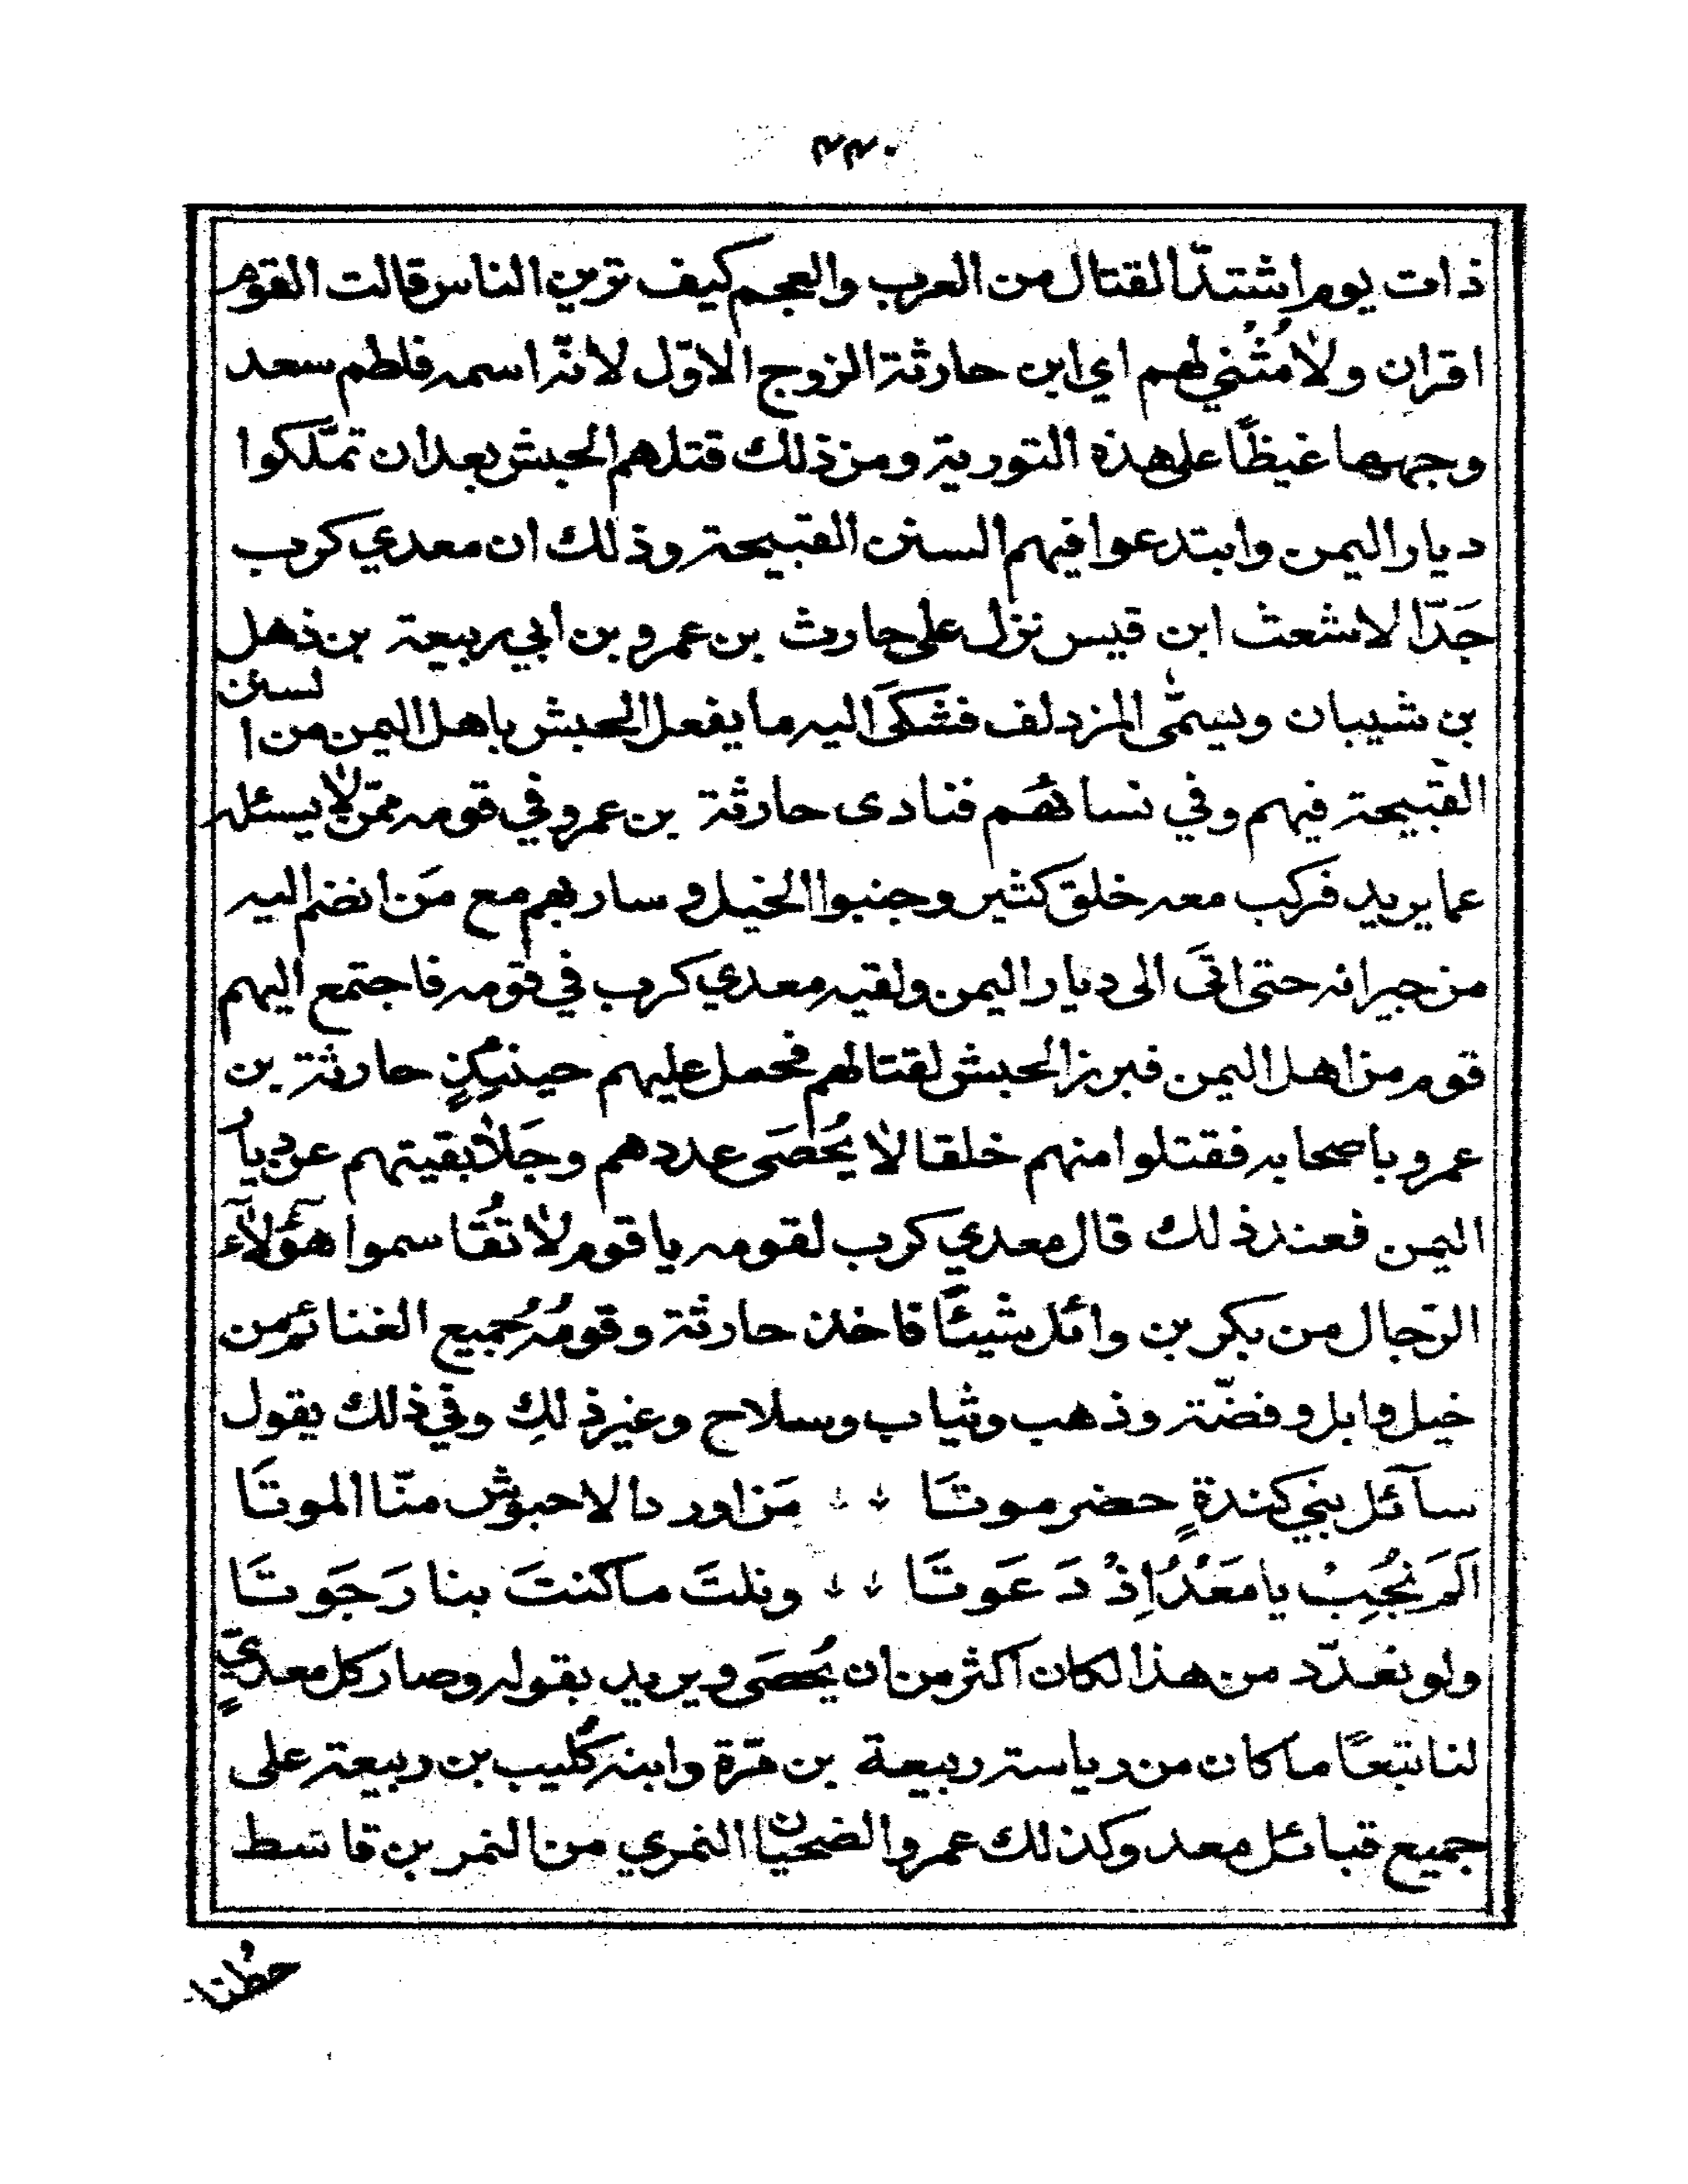 ٢٢٠
ذات يوم اشتدّ القتال من العرب والعجم كيف ترين الناس قالت القوم
اقران ولا مُثُني لهم اي ابن حارثة الزوج الاوّل لانّه اسمه فلطم سعد
وجهها غيظًا على هذه التورية ومن ذلك قتلهم الحبش بعد ان تملّكوا
ديار اليمن وابتدعوا فيهم السنن القبيحة وذلك ان معدي كرب
جَدّ الاشعث ابن قيس نزل على حارث بن عمرو بن ابي ربيعة بن ذهل
بن شيبان ويسمّى المزدلف فشكَى اليه ما يفعل الحبش باهل اليمن من السنن
القبيحة فيهم وفي نسائهُم فنادى حارثة بن عمرو في قومه ممّن لا يسئله
عما يريد فركب معه خلق كثير وجنبوا الخيل وسار بهم مع مَن انضم اليه
من جيرانه حتى اتَى الى ديار اليمن ولقيه معدي كرب في قومه فاجتمع اليهم
قوم من اهل اليمن فبرز الحبش لقتالهم فحمل عليهم حينئذٍ حارثة بن
عمرو باصحابه فقتلوا منهم خلقا لا يُحْصَى عددهم وجَلا بقيتهم عن ديار
اليمن فعند ذلك قال معدي كرب لقومه يا قوم لا تُقَاسموا هؤلآء
الرّجال من بكر بن وائل شيئًا فاخذ حارثة وقومُهُ جميع الغنائم من
خيل وابل وفضّة وذهب وثياب وسلاح وغير ذلكِ وفي ذلك يقول
سآئل بني كندةٍ حضر موتَا مَن اورد الاحبوش منّا الموتَا
اَلَم نُجِبْ يا مَعْدُ اِذْ دَعَوتَا ونلتَ ما كنتَ بنا رَجَوتَا
ولو نعدّد من هذا لكان اكثر من ان يُحصَى ويريد بقوله وصار كل معديٍّ
لنا تبعًا ما كان من رياسة ربيعة بن مرّة وابنه كُليب بن ربيعة على
جميع قبائل معد وكذلك عمرو الضحيان النمري من النمر بن قاسط